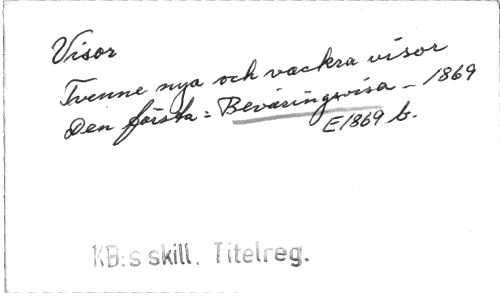 Visor
Tvenne nya och vackra visor
Den första: Beväringsvisa - 1869
E1869 b.
KB:s skill. Titelreg.